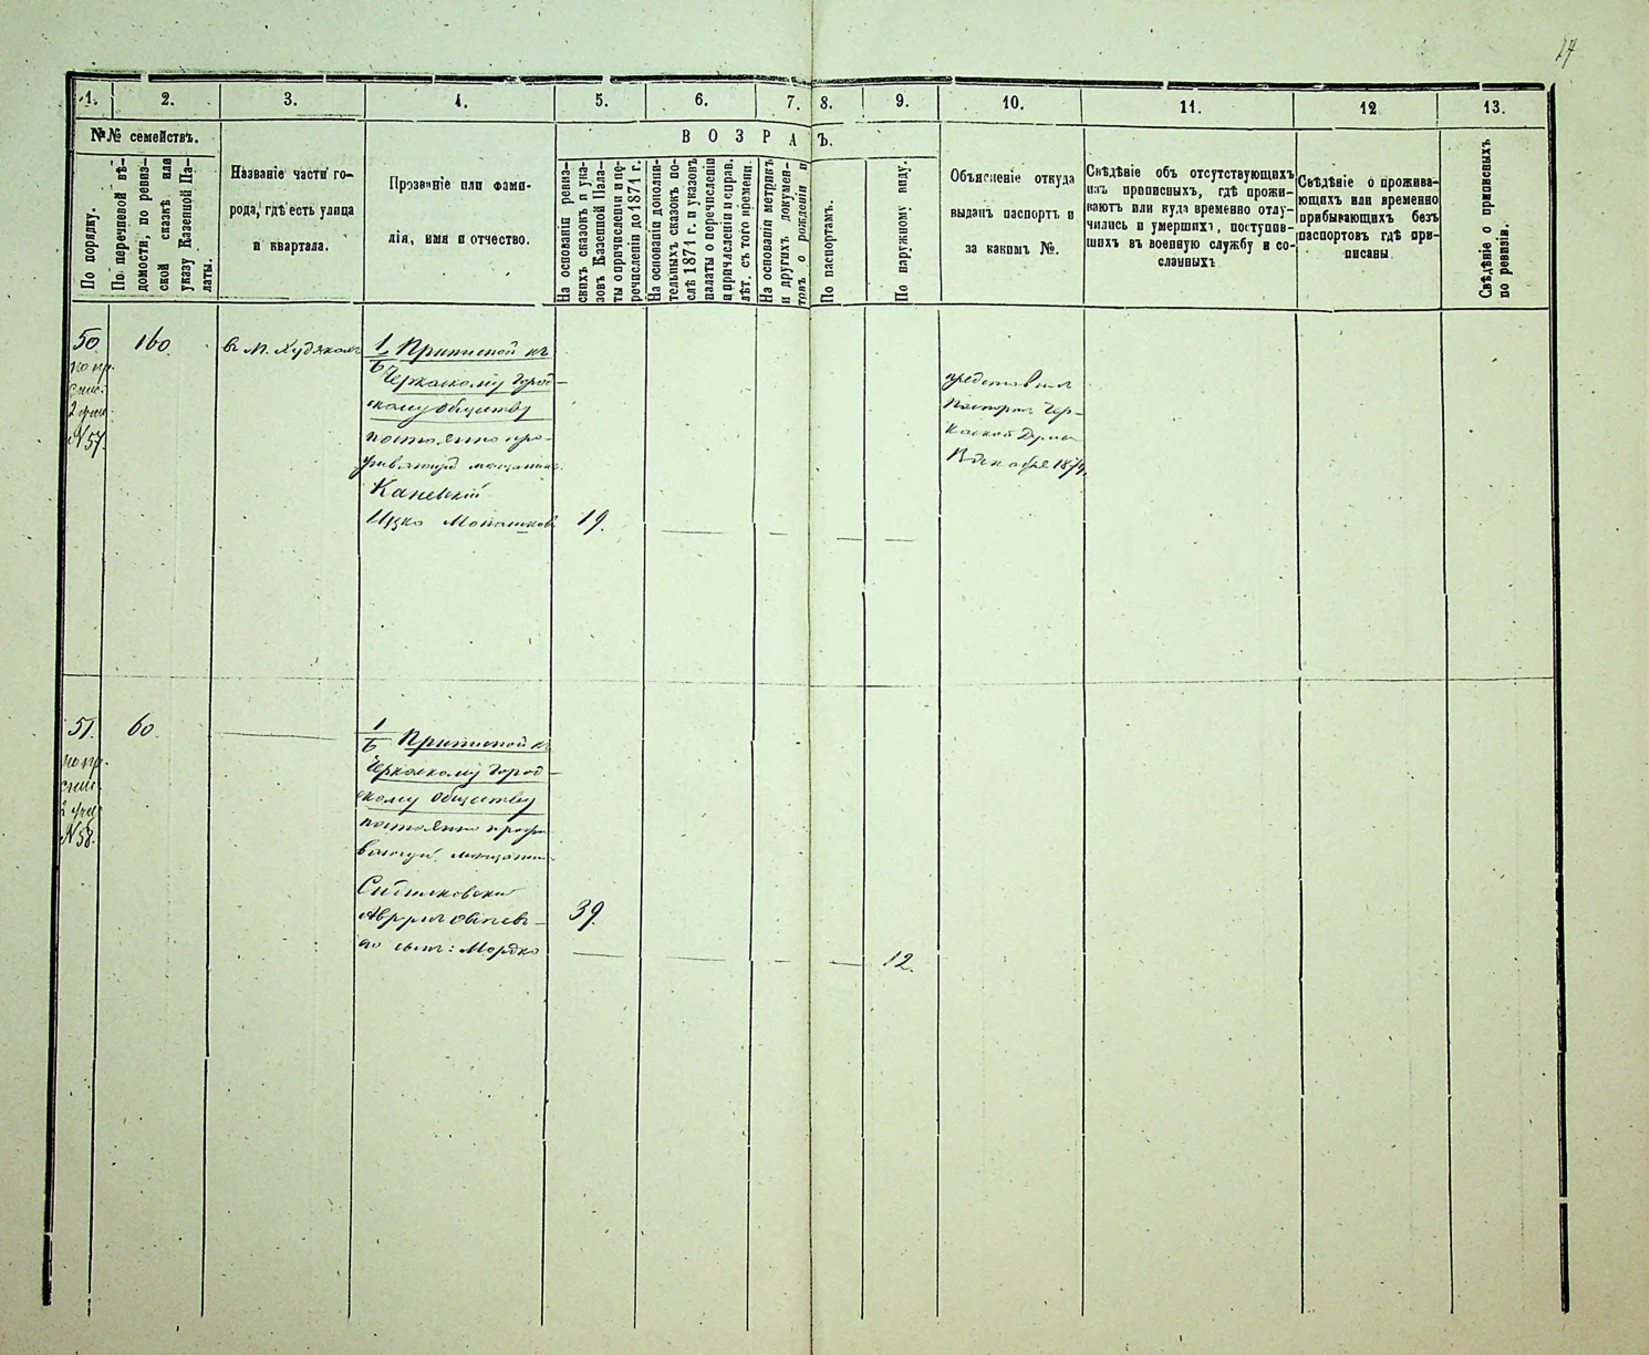 27
1.
2.
3.
4.
5.
6.
7.
8.
9.
10.
11.
12
13.
№№ семействъ.
По порядку.
По перечневой вѣ-
домости, по ревиз-
ской сказкѣ или
указу Казенной Па-
латы.
Названіе части го-
рода, гдѣ есть улица
и квартала.
Прозваніе или фами-
лія, имя и отчество.
ВОЗРА Ъ.
На основаніи ревиз-
скихъ сказокъ и ука-
зовъ Казенной Пала-
ты о причисленіи и пе-
речисленіи до 1871 г.
На основаніи дополни-
тельныхъ сказокъ по-
слѣ 1871 г. и указовъ
палаты о перечисленіи
и причисленіи и справ.
лѣт. съ того времени.
На основаніи метрикъ
и другихъ докумен-
товъ о рожденіи и
По паспортамъ.
По наружному виду.
Объясненіе откуда
выданъ паспортъ и
за какимъ №.
Свѣдѣніе объ отсутствующихъ
изъ прописныхъ, гдѣ прожи-
ваютъ или куда временно отлу-
чились и умершихъ, поступив-
шихъ въ военную службу и со-
сланныхъ
Свѣдѣніе о прожива-
ющихъ или временно
прибывающихъ безъ
паспортовъ гдѣ при-
писаны
Свѣдѣніе о приписныхъ
по ревизіи.
50
по пр.
спис.
2 учас.
№ 57.
160.
в М. Худякахъ
1/Б Приписной къ
Черкаскому Город-
скому Обществу
постоянно про-
живающій мещанинъ
Каневскій
Ицко Мошковъ
19.
представил
Паспортъ Чер-
каской Думы
декабря 1874
51.
по пр.
спис.
2 учас.
№ 58.
60.
1/Б Приписной къ
Черкаскому Город-
скому Обществу
постоянно прожи-
вающій мещанинъ
его сынъ: Мордко
39.
12.